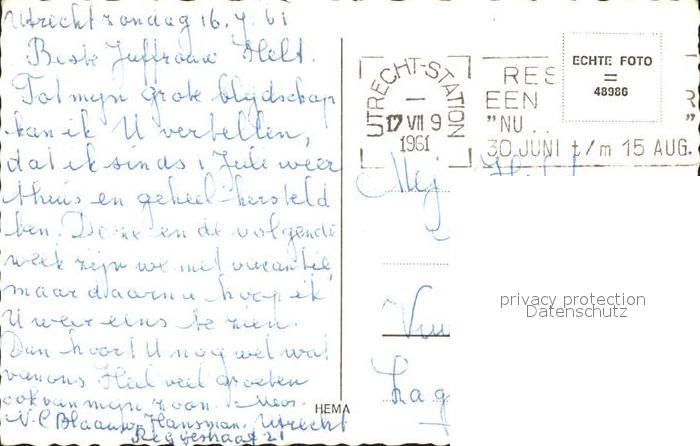 Utrecht zondag 16.7.61
Beste Juffrouw Helt.
Tot mijn grote blijdschap
kan ik U vertellen,
dat ik sinds 1 Juli weer
thuis en geheel hersteld
ben. Deze en de volgende
week zijn we met vacantie,
maar daarna hoop ik
U weer eens te zien.
Dan hoort U nog wel wat
van ons. Heel veel groeten
ook van mijn zoon. Mevr.
N.C. Blaauw-Hansman. Utrecht
21
HEMA
UTRECHT-STATION
17 VII 9
1961
RES
EEN R
"NU.. "
30 JUNI t/m 15 AUG.
ECHTE FOTO
=
48986
Mej
privacy protection
Datenschutz